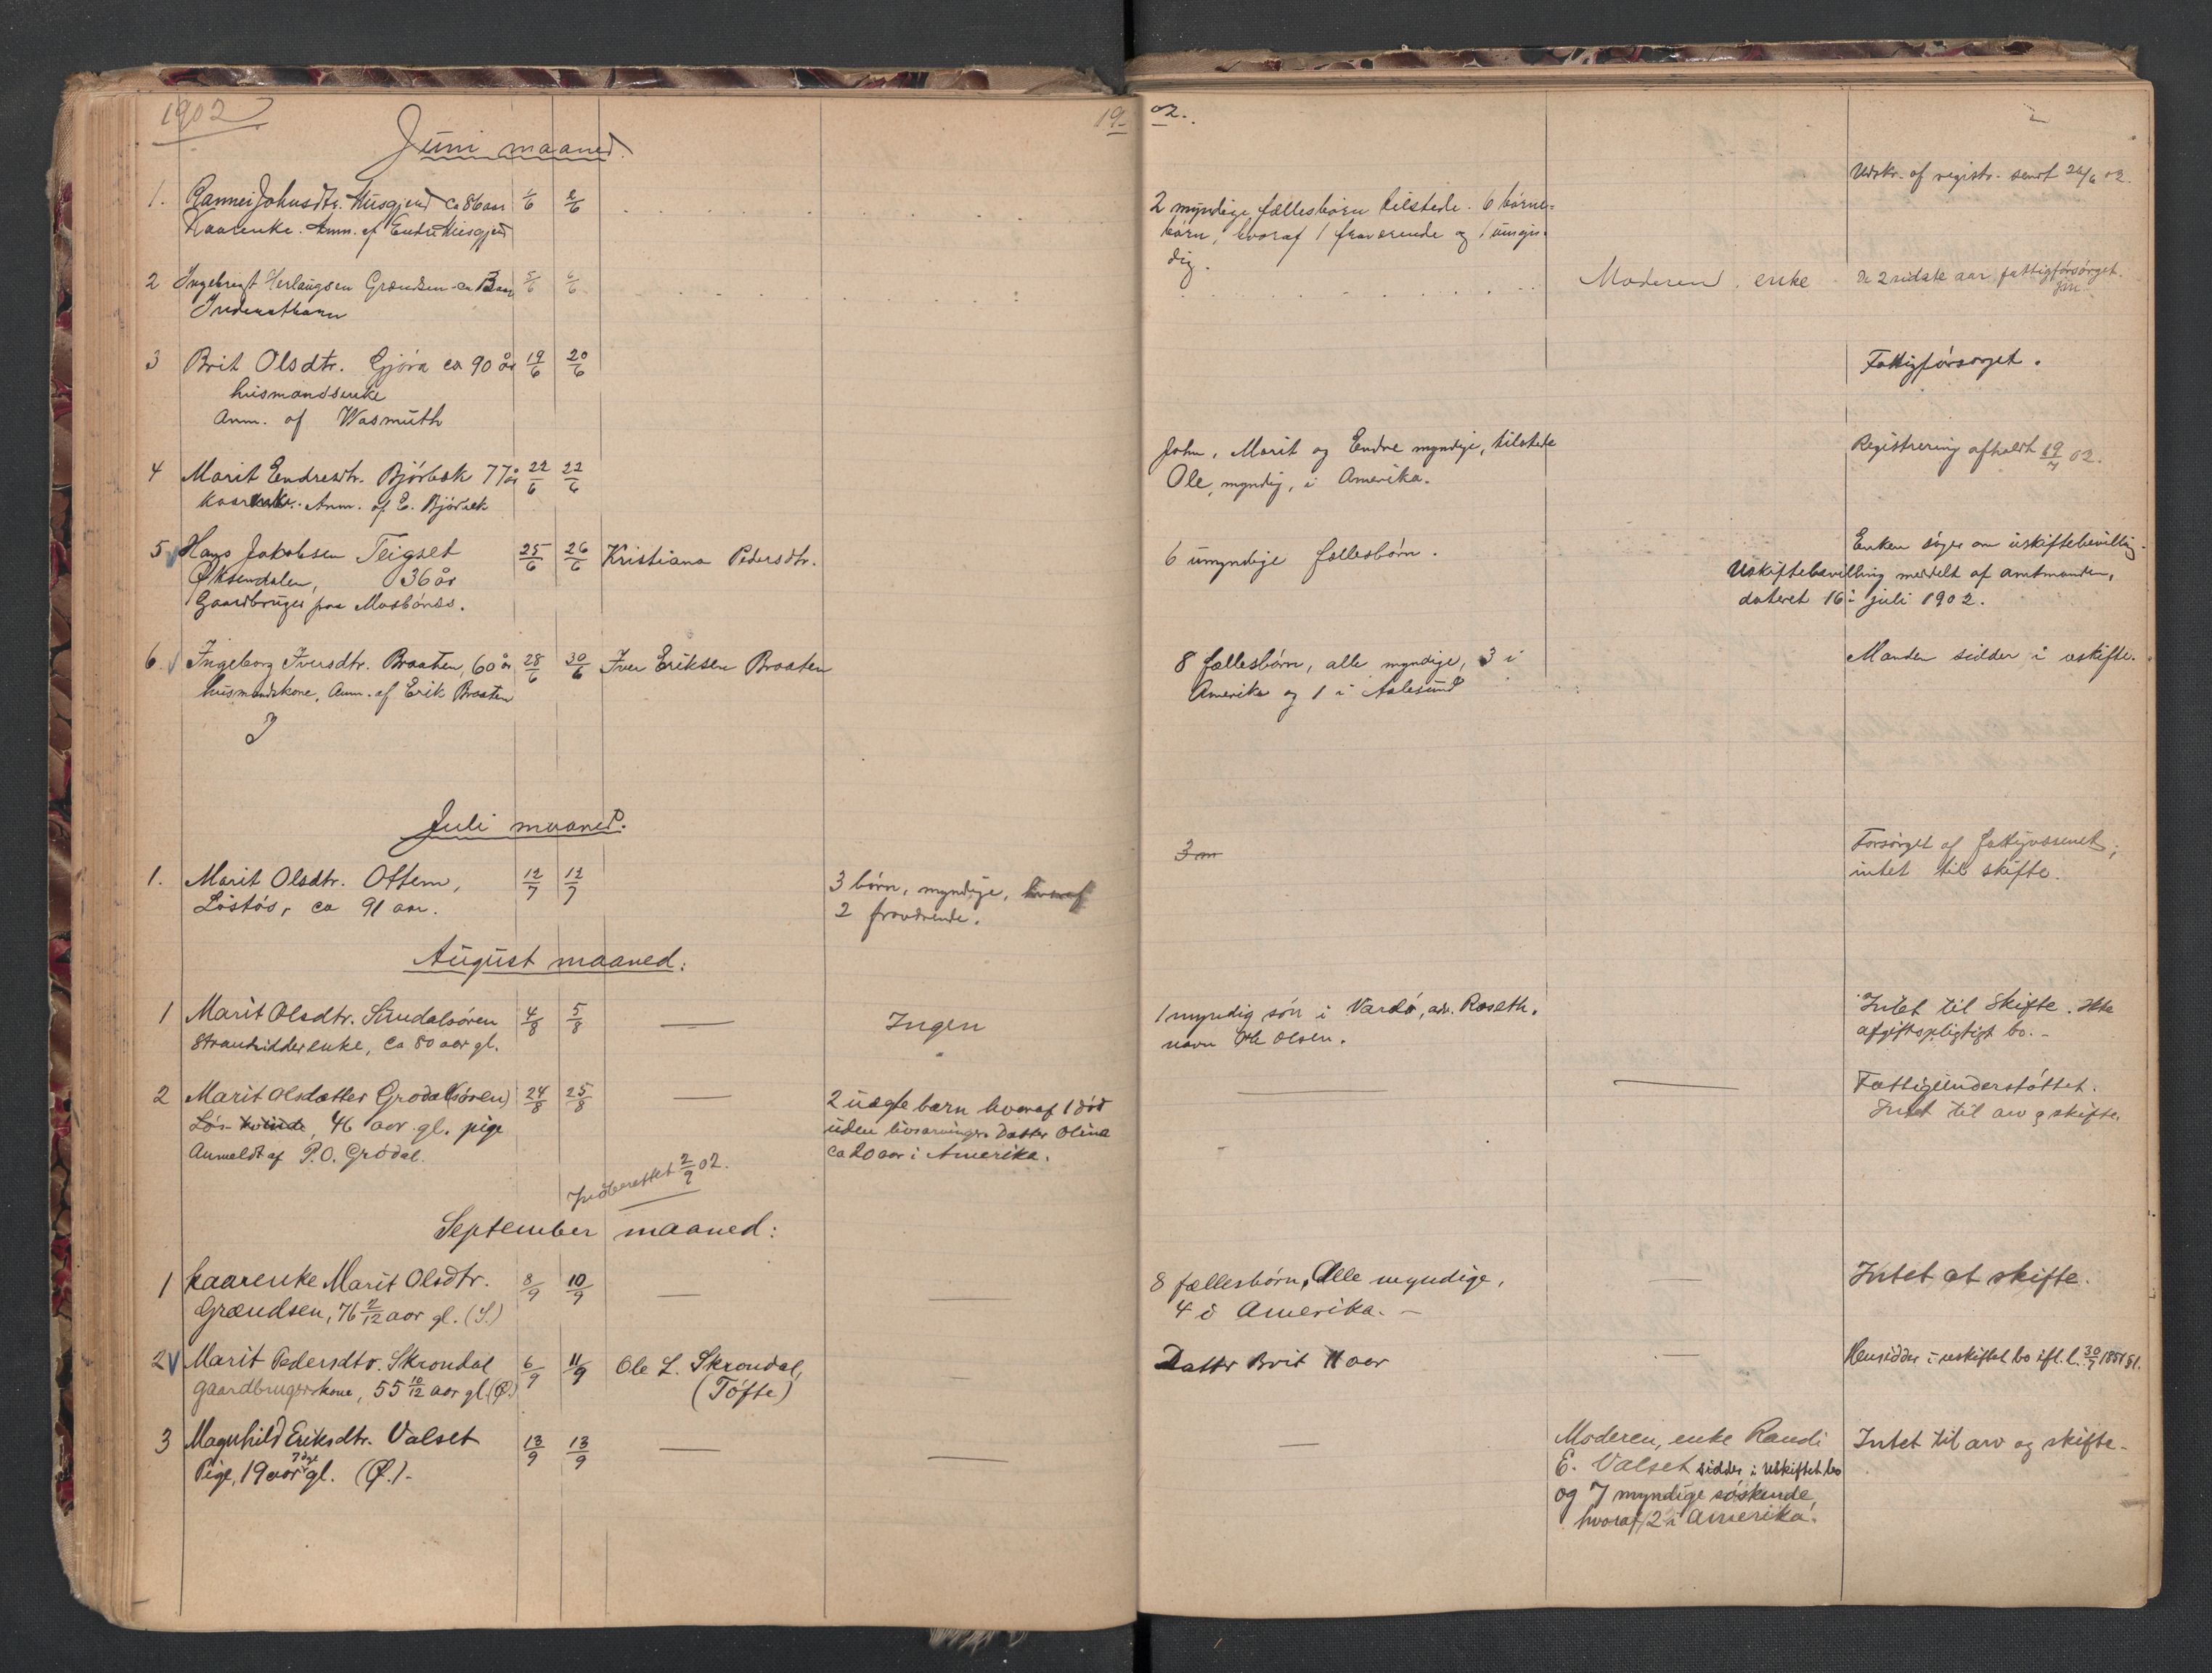 1902
19
02.
Juni maaned.
Udskr. af registr. sendt 26/6 02.
1. Rannei Johnsdtr. Husgjerd ca 86 aar 1/6 2/6
Kaarenke. Anm. af Endre Husgjerd
2 myndige fællesbørn tilstede. 6 børne=
børn, hvoraf 1 fraværende og 1 umyn-
dig.
2 Ingebrigt Herlaugsen Grændsen ca 5/6 6/6
Inderstbarn
Moderen, enke
De 2 sidste aar fattigforsørget.
3 Brit Olsdtr. Gjøra ca 90 år 19/6 20/6
husmandsenke
Anm. af Wasmuth
Fattigforsørget.
4 Marit Endresdtr. Bjørbæk 77 år 22/6 22/6
Kaarenke. Anm. af E. Bjørbæk
John, Marit og Endre myndige, tilstede
Ole, myndig, i Amerika.
Registrering afholdt 19/7 02.
5 Hans Jakobsen Teigset 25/6 26/6 Kristiana Pedersdtr.
Øksendalen, 36 år
Gaardbruger paa Mosbønes.
6 umyndige fællesbørn.
Enken søger om uskiftebevilling.
Uskiftebevilling meddelt af amtmanden,
dateret 16 juli 1902.
6. Ingeborg Iversdtr. Braaten, 60 år 28/6 30/6 Iver Eriksen Braaten
husmandskone, Anm. af Erik Braaten
8 fællesbørn, alle myndige, 3 i
Amerika og 1 i Aalesund
Manden sidder i uskifte.
Juli maaned.
3 m
1. Marit Olsdtr. Ottem, 12/7 12/7
Løstøs, ca 91 aar.
3 børn, myndige, hvoraf
2 fraværende.
Forsørget af fattigvæsenet;
intet til skifte.
August maaned:
1 Marit Olsdtr. Sundalsøren 4/8 5/8 — Ingen
Strandsidderenke, ca 80 aar gl.
1 myndig søn i Vardø, adr. Roseth.
navn Ole Olsen.
Intet til Skifte. Ikke
afgiftspligtigt bo. -
2 Marit Olsdatter Grødal (søren) 24/8 25/8 —
Løs kvinde, 46 aar gl. pige
Anmeldt af P.O. Grødal.
2 uægte barn hvoraf 1 død
uden livsarvinger. Datter Olina
ca 20 aar i Amerika.
— —
Fattigunderstøttet.
Intet til arv og skifte.
Indberettet 2/9 02.
September maaned:
1 Kaarenke Marit Olsdtr. 8/9 10/9 — —
Grændsen, 76 2/12 aar gl. (S.)
8 fællesbørn, Alle myndige,
4 i Amerika. -
—
Intet at skifte.
2 Marit Pedersdtr. Skrondal 6/9 11/9 Ole L. Skrondal, —
gaardbrugerskone, 55 10/12 aar gl. (Ø.) (Tøfte)
Datter Brit 11 aar
—
Hensidder i uskiftet bo ifl. l. 30/7 1851 § 1.
3 Magnhild Eriksdtr. Valset 13/9 13/9 — —
Pige, 19 aar gl. (Ø.) -
—
Moderen, enke Randi
E. Valset sidder i uskiftet bo
og 7 myndige søskende,
hvoraf 2 i Amerika.
Intet til arv og skifte -